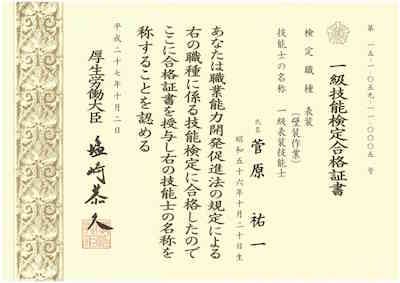 第一五-一-〇五九-一一-〇〇〇五号
一級技能検定合格証書
検定職種 表装
(壁装作業)
技能士の名称 一級表装技能士
氏名 菅原祐一
昭和五十六年十月二十日生
あなたは職業能力開発促進法の規定による
右の職種に係る技能検定に合格したので
ここに合格証書を授与し右の技能士の名称を
称することを認める
平成二十七年十月二日
厚生労働大臣 塩崎恭久